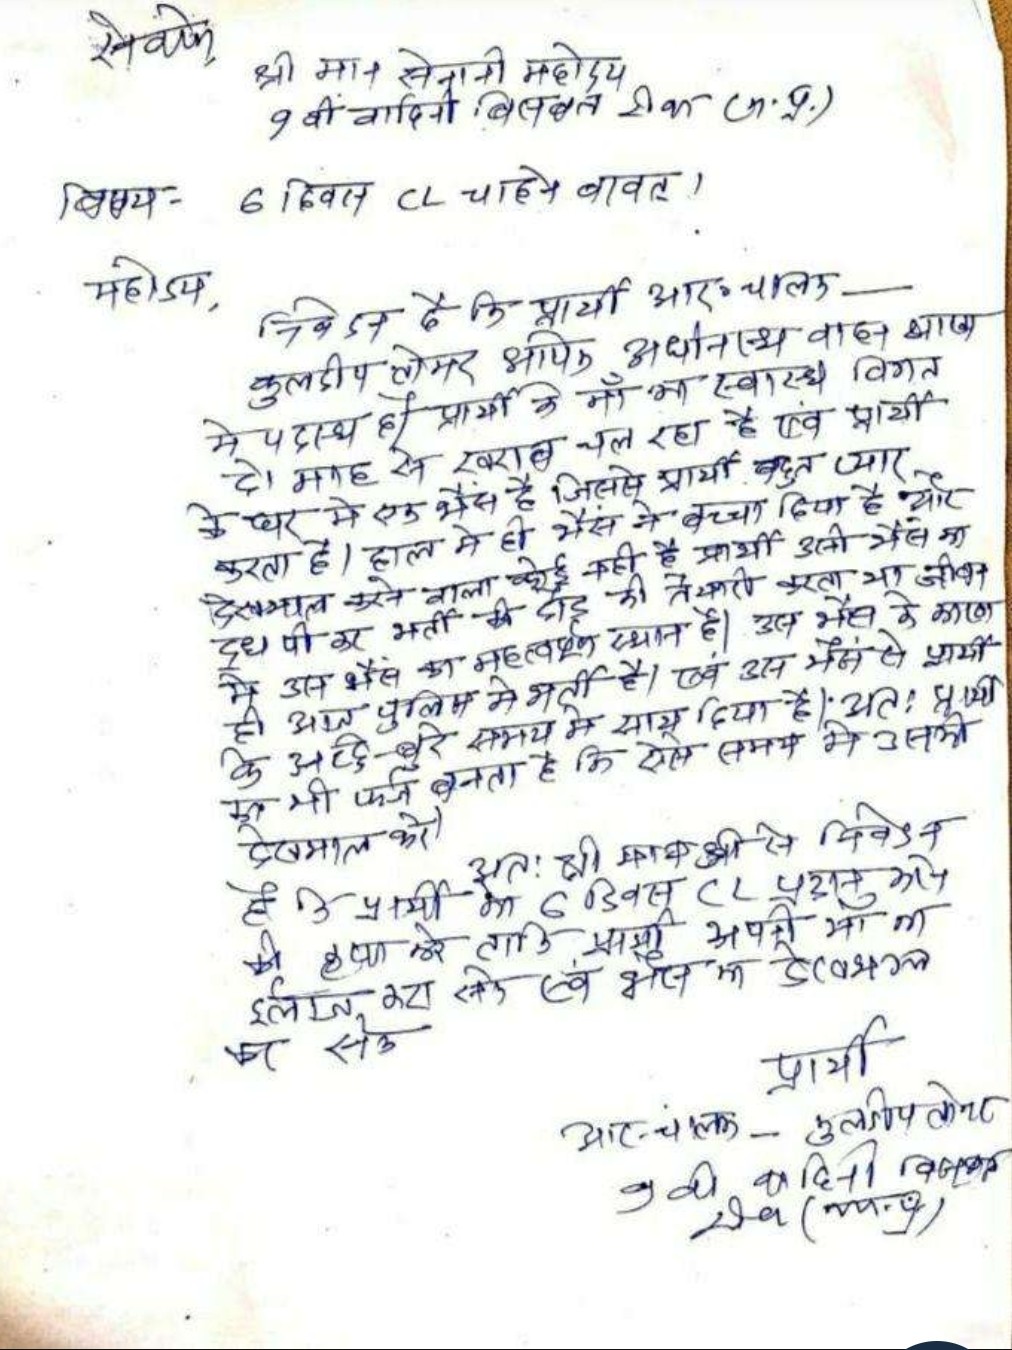 सेवामें,
श्री मान सेनानी महोदय
9 वी वाहिनी विसबल रीवा (म.प्र.)
विषय- 6 दिवस CL चाहने बावत्।
महोदय,
निवेदन है कि प्रार्थी आर.चालक —
कुलदीप तोमर आपके अधीनस्थ वाहन शाखा
मे पदास्थ है। प्रार्थी के माँ का स्वास्थ विगत
दो माह से खराब चल रहा है एवं प्रार्थी
के घर मे एक भैंस है जिससे प्रार्थी बहुत प्यार
करता है। हाल मे ही भैंस ने बच्चा दिया है और
देखभाल करने वाला कोई नही है प्रार्थी उसी भैंस का
दूध पी कर भर्ती की दौड़ की तैयारी करता था जीवन
मे उस भैंस का महत्वपूर्ण स्थान है। उस भैंस के कारण
ही आज पुलिस मे भर्ती है। एवं उस भैंस से प्रार्थी
के अच्छे-बुरे समय मे साथ दिया है। अतः प्रार्थी
का भी फर्ज बनता है कि ऐसे समय मे उसकी
देखभाल करे।
अतः श्री मान जी से निवेदन
है कि प्रार्थी को 6 दिवस CL प्रदान करने
की कृपा करे ताकि प्रार्थी अपनी माँ का
ईलाज करा सके एवं भैंस का देखभाल
कर सके
प्रार्थी
आर-चालक — कुलदीप तोमर
9 वी वाहिनी विसबल
रीवा (म.प्र.)